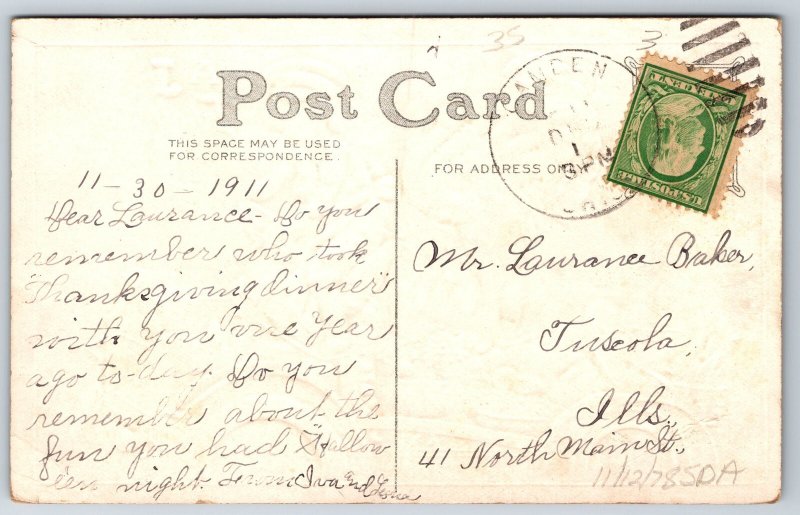 35
3
Post Card
CAMDEN
DEC
1
3 PM
OHIO
THIS SPACE MAY BE USED
FOR CORRESPONDENCE.
FOR ADDRESS ON
11-30-1911
Dear Laurance - Do you
remember who took
"Thanksgiving dinner"
with you one year
ago to-day. Do you
remember about the
fun you had "Hallow
een night. From Iva and
Mr. Laurance Baker,
Tuscola,
Ills,
41 North Main St.,
11/12/78SDA